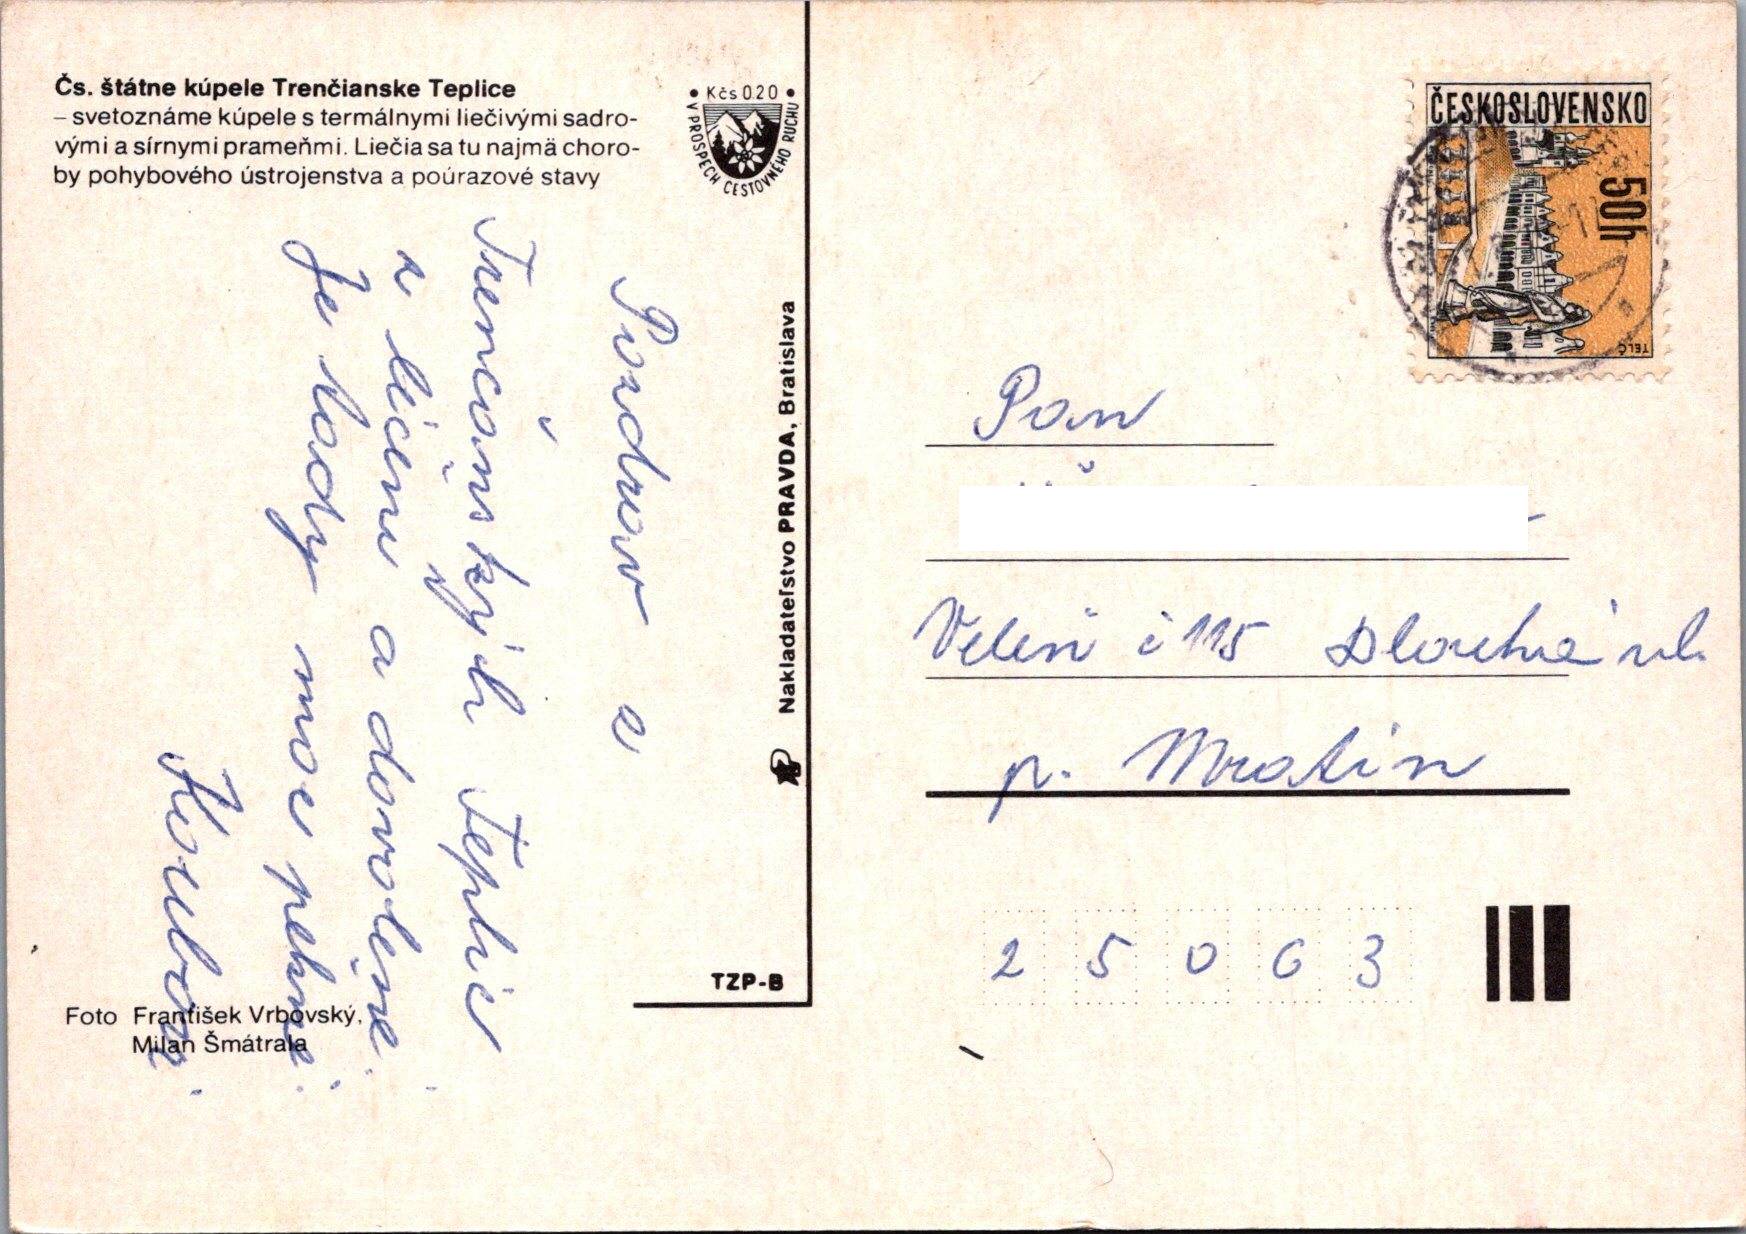 Čs. štátne kúpele Trenčianske Teplice
– svetoznáme kúpele s termálnymi liečivými sadro-
vými a sírnymi prameňmi. Liečia sa tu najmä choro-
by pohybového ústrojenstva a poúrazové stavy
• Kčs 0.20 •
V PROSPECH CESTOVNÉHO RUCHU
Pozdrav z
Trenčanských Teplic
z léčení a dovolené.
Je tady moc pěkně.
Nakladateľstvo PRAVDA, Bratislava
TZP-B
Foto František Vrbovský,
Milan Šmátrala
ČESKOSLOVENSKO
50h
TELČ
Pan
Veleň č 115 Dlouhá ul.
p. Mratín
25063